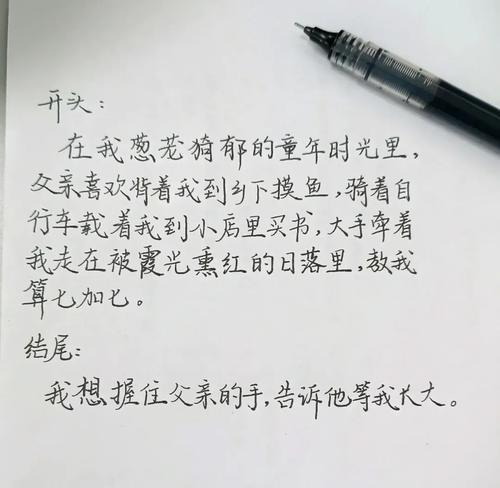 开头：
在我葱茏猗郁的童年时光里，
父亲喜欢背着我到乡下摸鱼，骑着自
行车载着我到小店里买书，大手牵着
我走在被霞光熏红的日落里，教我
算七加七。
结尾：
我想握住父亲的手，告诉他等我长大。